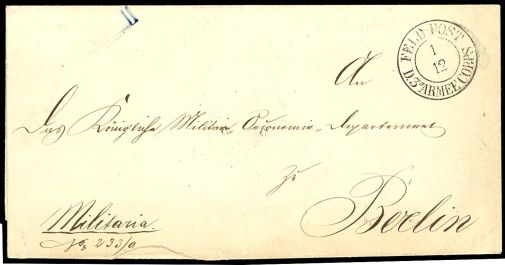 FELD-POST
1
12
D. 3n ARMEE CORPS
An
Das Königliche Militair-Oeconomie-Departement
zu
Berlin
Militaria.
No. 233/a